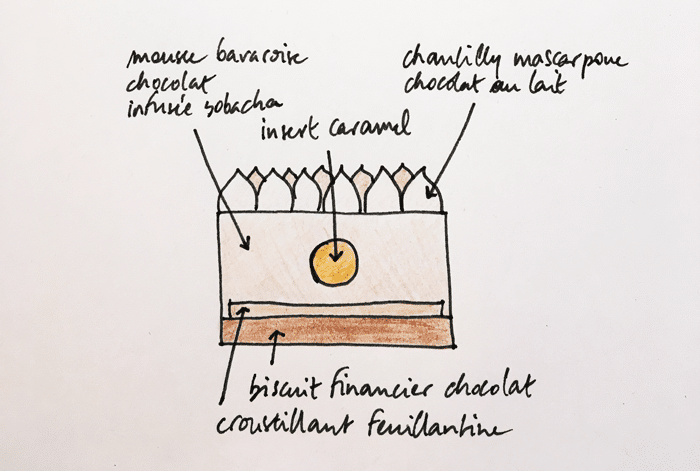 mousse bavaroise
chocolat
infusée sobacha
insert caramel
chantilly mascarpone
chocolat au lait
biscuit financier chocolat
croustillant feuillantine